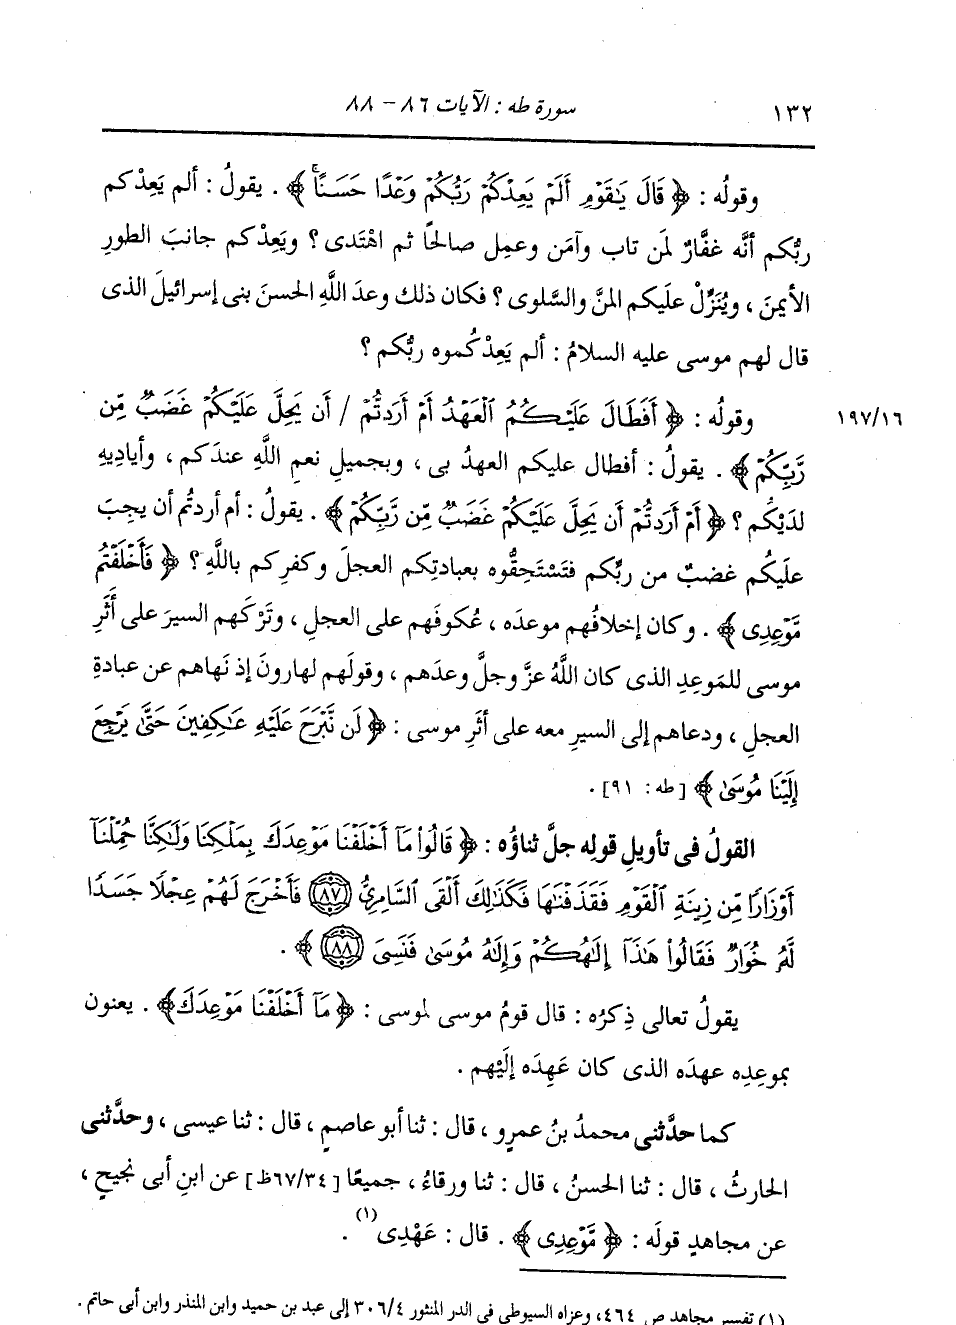 ١٣٢ سورة طه : الآيات ٨٦ - ٨٨
وقولُه : ﴿ قَالَ يَٰقَوْمِ أَلَمْ يَعِدْكُمْ رَبُّكُمْ وَعْدًا حَسَنًا ﴾ . يقولُ : ألم يَعِدْكم
ربُّكم أنَّه غفَّارٌ لمَن تاب وآمَن وعمِل صالحًا ثم اهْتَدى ؟ ويَعِدْكم جانبَ الطورِ
الأيمنَ ، ويُنَزِّلْ عليكم المنَّ والسَّلوى ؟ فكان ذلك وعدَ اللَّهِ الحسنَ بنى إسرائيلَ الذى
قال لهم موسى عليه السلامُ : ألم يَعِدْكُموه ربُّكم ؟
وقولُه : ﴿ أَفَطَالَ عَلَيْكُمُ ٱلْعَهْدُ أَمْ أَرَدتُّمْ / أَن يَحِلَّ عَلَيْكُمْ غَضَبٌ مِّن ١٩٧/١٦
رَّبِّكُمْ ﴾ . يقولُ : أفطال عليكم العهدُ بى ، وبجميلِ نعمِ اللَّهِ عندَكم ، وأيادِيهِ
لدَيْكم ؟ ﴿ أَمْ أَرَدتُّمْ أَن يَحِلَّ عَلَيْكُمْ غَضَبٌ مِّن رَّبِّكُمْ ﴾ . يقولُ : أم أردتُم أن يجِبَ
علَيكُم غضبٌ من ربِّكم فتَسْتَحِقُّوه بعبادتِكم العجلَ وكفرِكم باللَّهِ ؟ ﴿ فَأَخْلَفْتُم
مَّوْعِدِى ﴾ . وكان إخلافُهم موعدَه ، عُكوفَهم على العجلِ ، وتَرْكَهم السيرَ على أَثَرِ
موسى للمَوعِدِ الذى كان اللَّهُ عزَّ وجلَّ وعدَهم ، وقولَهم لهارونَ إذ نَهاهم عن عبادةِ
العجلِ ، ودعاهم إلى السيرِ معه على أثَرِ موسى : ﴿ لَن نَّبْرَحَ عَلَيْهِ عَٰكِفِينَ حَتَّىٰ يَرْجِعَ
إِلَيْنَا مُوسَىٰ ﴾ [ طه : ٩١] .
القولُ فى تأويلِ قولِه جلَّ ثناؤُه : ﴿ قَالُوا۟ مَآ أَخْلَفْنَا مَوْعِدَكَ بِمَلْكِنَا وَلَٰكِنَّا حُمِّلْنَآ
أَوْزَارًا مِّن زِينَةِ ٱلْقَوْمِ فَقَذَفْنَٰهَا فَكَذَٰلِكَ أَلْقَى ٱلسَّامِرِيُّ ﴿٨٧﴾ فَأَخْرَجَ لَهُمْ عِجْلًا جَسَدًا
لَّهُۥ خُوَارٌ فَقَالُوا۟ هَٰذَآ إِلَٰهُكُمْ وَإِلَٰهُ مُوسَىٰ فَنَسِىَ ﴿٨٨﴾ ﴾ .
يقولُ تعالى ذِكرُه : قال قومُ موسى لموسى : ﴿ مَآ أَخْلَفْنَا مَوْعِدَكَ﴾ . يعنون
بموعِدِه عهدَه الذى كان عَهِدَه إلَيْهم .
كما حدَّثنى محمدُ بنُ عمرٍو ، قال : ثنا أبو عاصمٍ ، قال : ثنا عيسى ، وحدَّثنى
الحارثُ ، قال : ثنا الحسنُ ، قال : ثنا ورقاءُ ، جميعًا [٦٧/٣٤ظ] عن ابنِ أبى نجيحٍ ،
عن مجاهدٍ قولَه : ﴿ مَّوْعِدِى ﴾ . قال : عَهْدِى(١) .
(١) تفسير مجاهد ص ٤٦٤، وعزاه السيوطى فى الدر المنثور ٣٠٦/٤ إلى عبد بن حميد وابن المنذر وابن أبى حاتم .